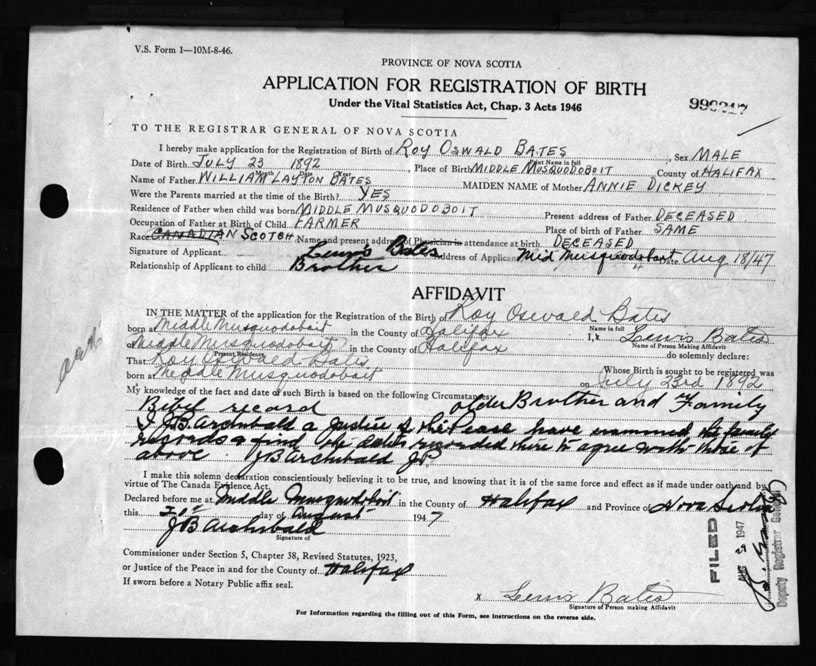 V.S. Form 1—10M-8-46.
PROVINCE OF NOVA SCOTIA
APPLICATION FOR REGISTRATION OF BIRTH
Under the Vital Statistics Act, Chap. 3 Acts 1946
TO THE REGISTRAR GENERAL OF NOVA SCOTIA
I hereby make application for the Registration of Birth of ROY OSWALD BATES, Sex MALE
Name in full
Date of Birth JULY 23 1892, Place of Birth MIDDLE MUSQUODOBOIT, County of HALIFAX
Month Date Year
Name of Father WILLIAM LAYTON BATES MAIDEN NAME of Mother ANNIE DICKEY
Were the Parents married at the time of the Birth? YES
Residence of Father when child was born MIDDLE MUSQUODOBOIT Present address of Father DECEASED
Occupation of Father at Birth of Child FARMER Place of birth of Father SAME
Race CANADIAN SCOTCH Name and present address of Physician in attendance at birth DECEASED
Signature of Applicant Lewis Bates Address of Applicant Mid Musquodoboit Date Aug 18/47
Relationship of Applicant to child Brother
AFFIDAVIT
IN THE MATTER of the application for the Registration of the Birth of Roy Oswald Bates
Name in full
born at Middle Musquodobait in the County of Halifax I, x Lewis Bates
Name of Person Making Affidavit
of Middle Musquodobait in the County of Halifax do solemnly declare:
Present Residence
That Roy Oswald Bates Whose Birth is sought to be registered was
born at Middle Musquodobait on July 23rd 1892
My knowledge of the fact and date of such Birth is based on the following Circumstances: older Brother and Family
Bibel record
I J.B. Archibald a Justice of the Peace have examined the family
records & find the dates recorded here to agree with those of
above. J B Archibald J.P.
I make this solemn declaration conscientiously believing it to be true, and knowing that it is of the same force and effect as if made under oath and by
virtue of The Canada Evidence Act.
Declared before me at Middle Musquodoboit in the County of Halifax and Province of Nova Scotia
this day of August 1947
J B Archibald
Signature of
Commissioner under Section 5, Chapter 38, Revised Statutes, 1923,
or Justice of the Peace in and for the County of Halifax
If sworn before a Notary Public affix seal.
x Lewis Bates
Signature of Person making Affidavit
For Information regarding the filling out of this Form, see instructions on the reverse side.
FILED
1947
Deputy Registrar General